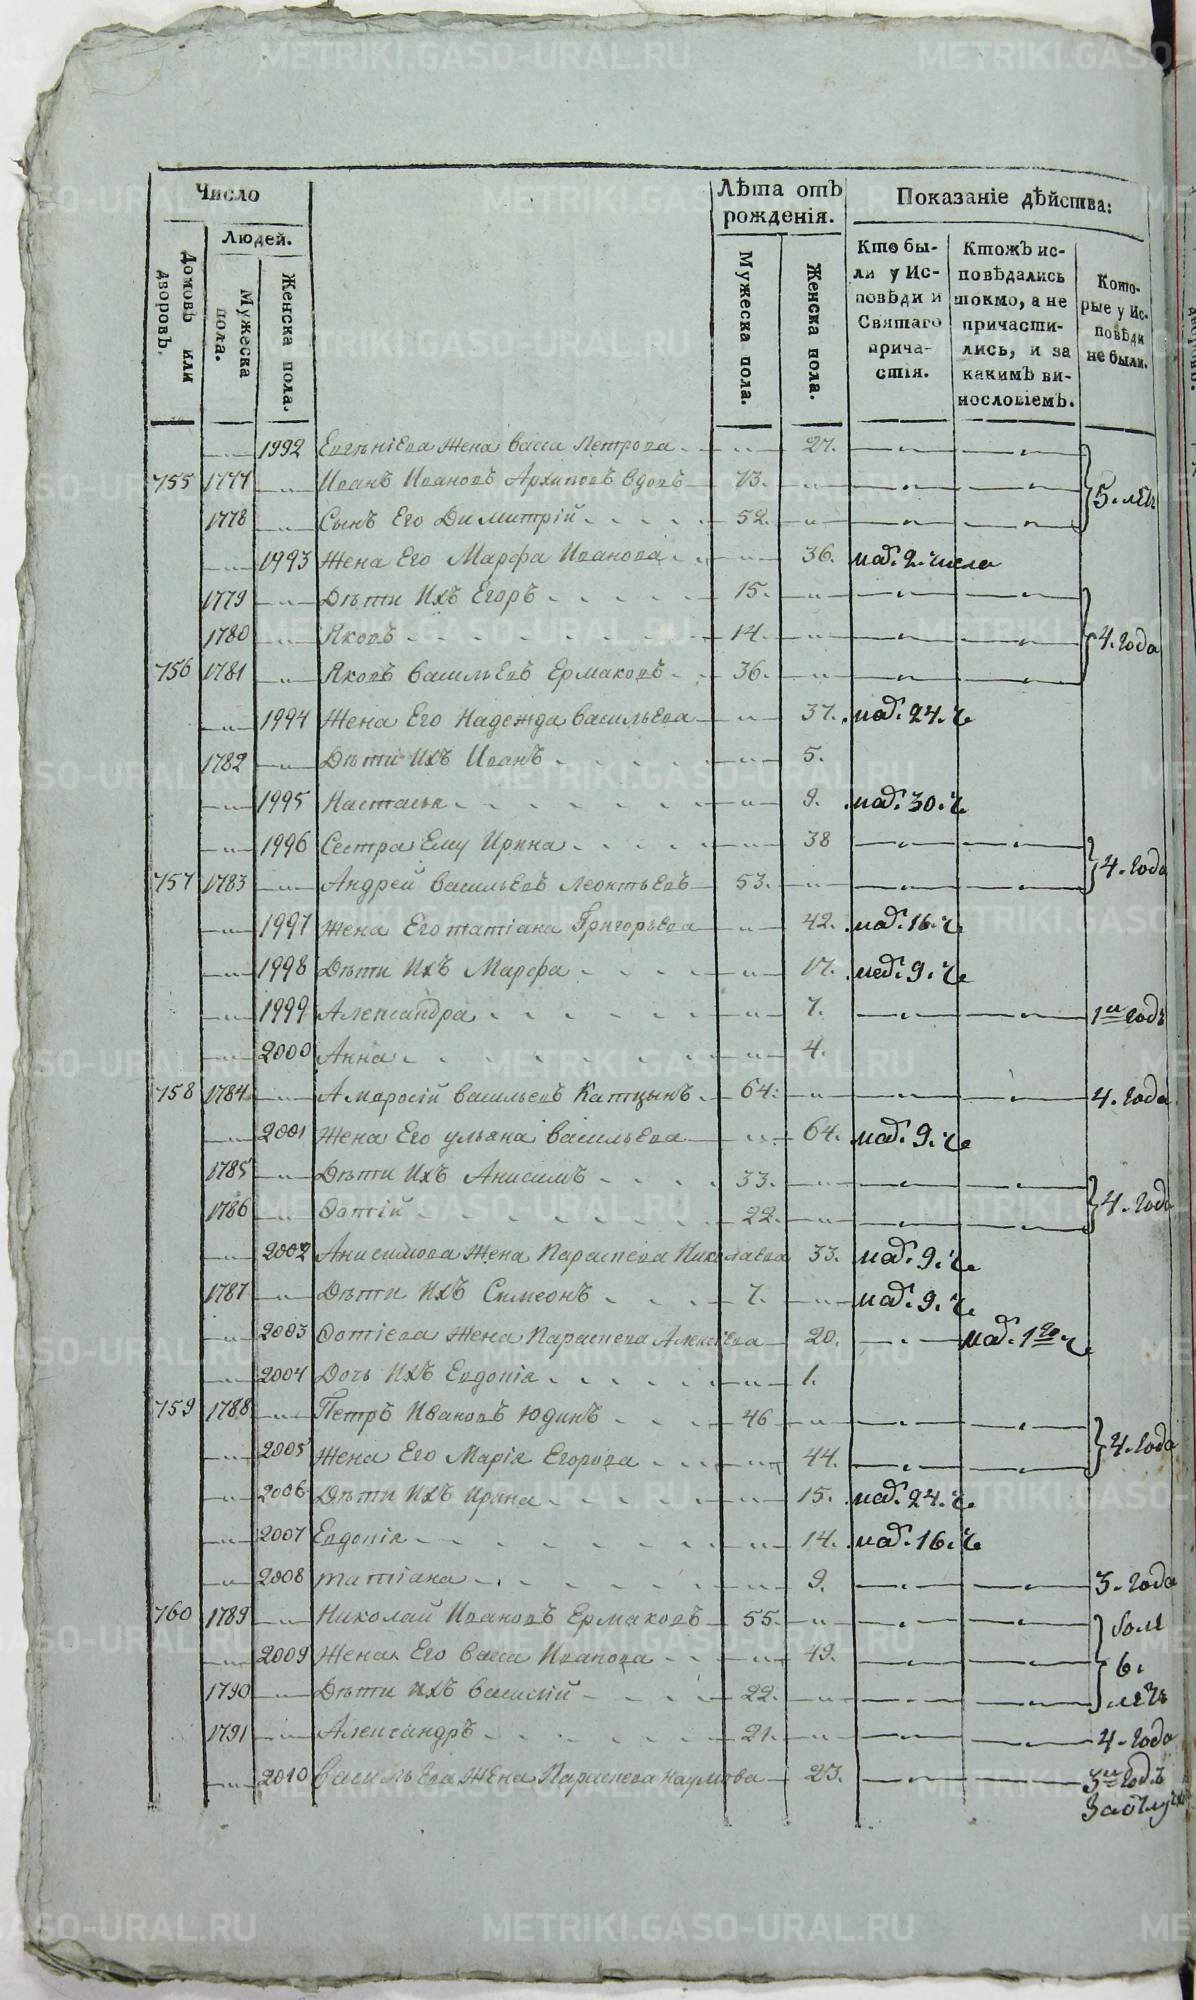 METRIKI.GASO-URAL.RU
Число
Людей.
Домовъ или дворовъ.
Мужеска пола.
Женска пола.
Лѣта отъ рожденія.
Мужеска пола.
Женска пола.
Показаніе дѣйства:
Кто бы-
ли у Ис-
повѣди и
Святаго
прича-
стія.
Ктожъ ис-
повѣдались
токмо, а не
причасти-
лись, и за
какимъ ви-
нословіемъ.
Кото-
рые у Ис-
повѣди
не были.
1992 Евгеніева жена Васса Петрова 27.
755 1777 Иванъ Ивановъ Архиповъ вдовъ 73.
1778 Сынъ Его Димитрій 52. 5. лѣтъ
1993 Жена Его Марфа Иванова 36. маѳ. 2. числа
1779 Дѣти Ихъ Егоръ 15.
1780 Яковъ 14. 4. года
756 1781 Яковъ Васильевъ Ермаковъ 36.
1994 Жена Его Надежда Васильева 37. 24. ч
1782 Дѣти Ихъ Иванъ 5.
1995 Настасья 9. 30. ч
1996 Сестра Ему Ирина 38
757 1783 Андрей Васильевъ Леонтьевъ 53. 4. года
1997 Жена Его Татіана Григорьева 42. 16. ч
1998 Дѣти Ихъ Марфа 17. 9. ч
1999 Александра 7. 1й годъ
2000 Анна 4.
758 1784 Амвросій Васильевъ Катцынъ 64. 4. года
2001 Жена Его Ульяна Васильева 64. 9. ч
1785 Дѣти Ихъ Анисимъ 33.
1786 Фотій 22. 4. года
2002 Анисимова Жена Параскева Николаева 33. 9. ч
1787 Дѣти Ихъ Симеонъ 7. 9. ч
2003 Фотіева Жена Параскева Алексіева 20. 1го ч
2004 Дочь Ихъ Евдокія 1.
759 1788 Петръ Ивановъ Юдинъ 46
2005 Жена Его Марія Егорова 44. 4. года
2006 Дѣти Ихъ Ирина 15. 24. ч
2007 Евдокія 14. 16. ч
2008 Татіана 9. 3. года
760 1789 Николай Ивановъ Ермаковъ 55. болѣ
2009 Жена Его Васса Иванова 49. 6.
1790 Дѣти ихъ Василій 22. лѣтъ
1791 Александръ 21. 4. года
2010 Васильева Жена Параскева Наумова 23. 3й годъ